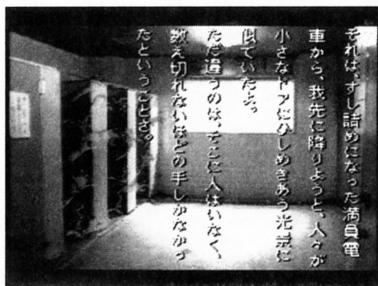 それは、すし詰めになった満員電
車から、我先に降りようと、人々が
小さなドアにひしめきあう光景に
似ていたよ。
ただ違うのは、そこに人はいなく、
数え切れないほどの手しかなかっ
たということさ。